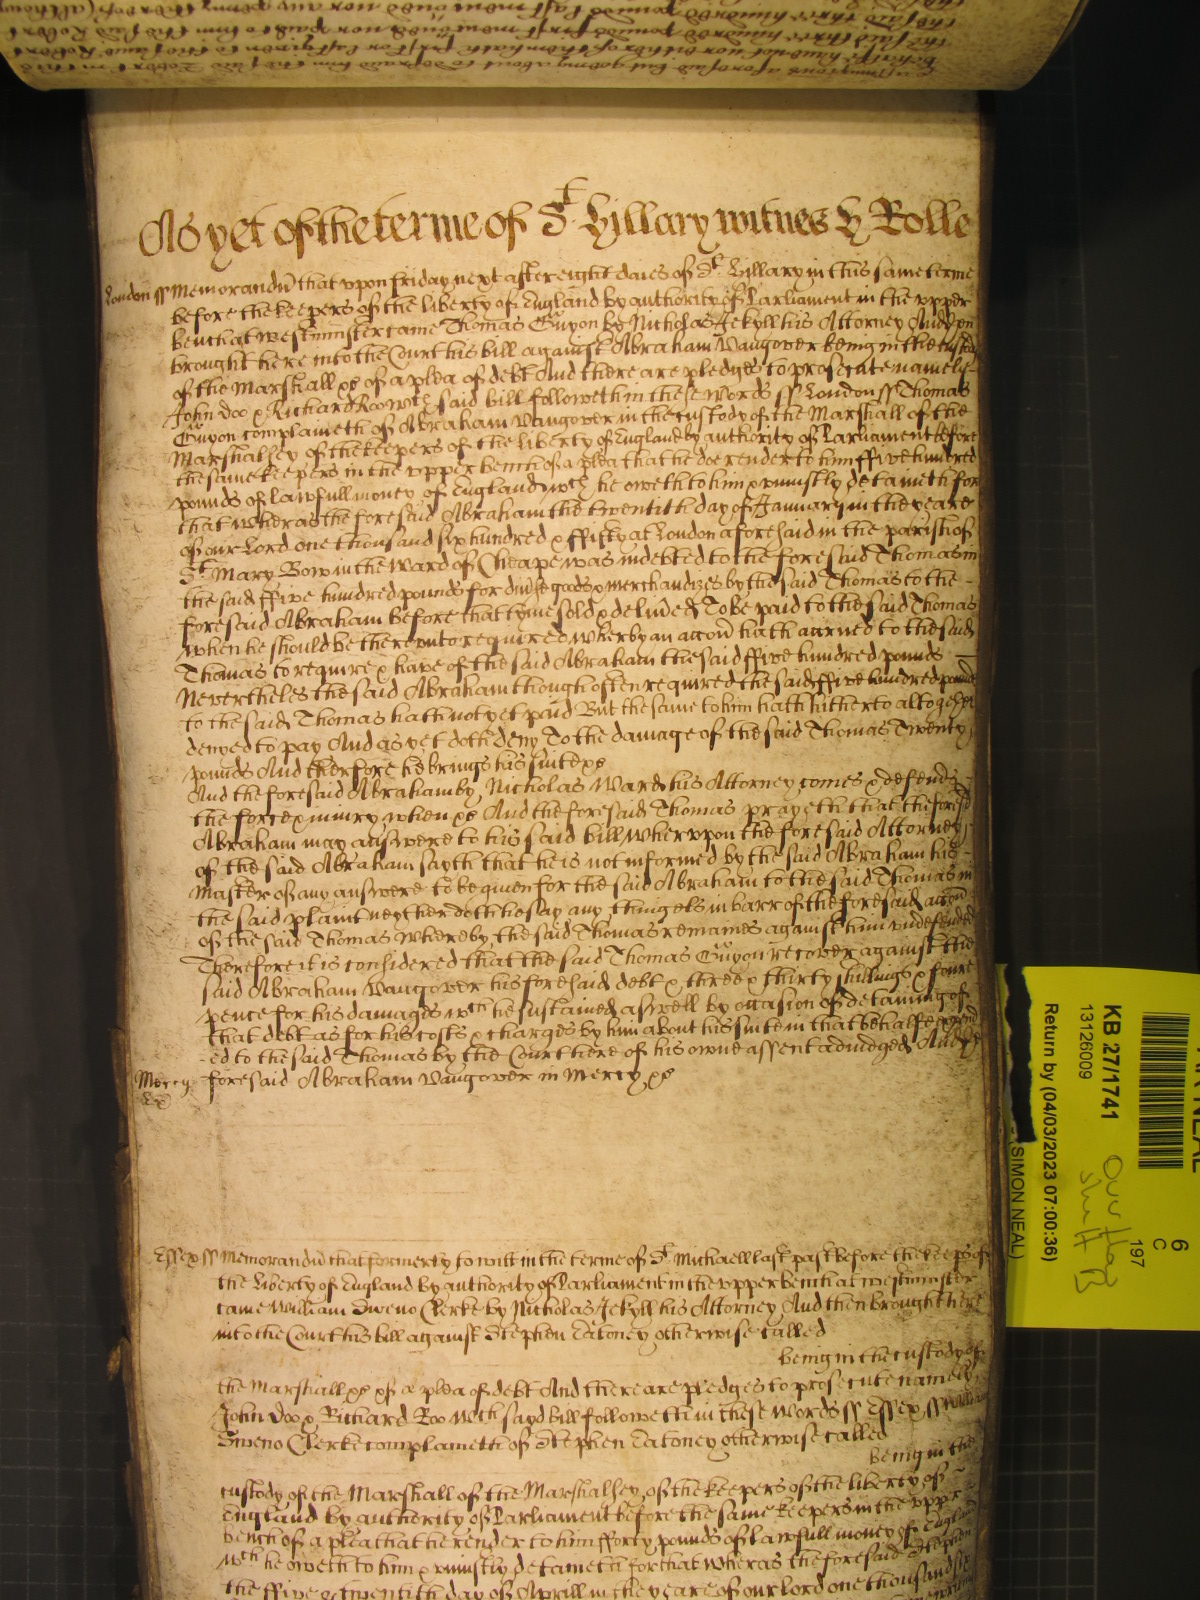 As yet of the terme of St Hillary witnes H Rolle
London ss Memorandu that upon friday next after eight daies of St Hillary in this same terme
before the keepers of the liberty of England by authority of Parliament in the upper
bench at Westminster came Thomas Guyon by Nicholas Jekyll his Attorney And
brought here into the Court his bill against Abraham Vangover being in the custody
of the Marshall xc of a plea of debt And there are pledges to prosecute namely
John Doo x Richard Roo wch said bill followeth in these words ss London ss Thomas
Guyon complaineth of Abraham Vangover in the custody of the Marshall of the
Marshallsey of the keepers of the liberty of England by authority of Parliament before
the same keepers in the upper bench of a plea that he doe render to him ffive hundred
pounds of lawfull money of England wch he oweth to him x uniustly detaineth for
that wheras the foresaid Abraham the twentith day of January in the yeare
of our Lord one thousand six hundred x ffifty at London aforesaid in the parish of
St Mary Bow in the Ward of Cheape was indebted to the foresaid Thomas in
the said ffive hundred pounds for divse goods x merchandizes by the said Thomas to the -
foresaid Abraham before that tyme sold x delivered To be paid to the said Thomas
when he should be thereunto required Wherby an accon hath accrued to the said
Thomas to require x have of the said Abraham the said ffive hundred pounds —
Nevertheles the said Abraham though often required the said ffive hundred pounds
to the said Thomas hath not yet paid But the same to him hath hitherto altogether
denyed to pay And as yet doth deny To the damage of the said Thomas Twenty
pounds And therfore he brings his suite xc
And the foresaid Abraham by Nicholas Ward his Attorney comes x defends -
the force x iniury when xc And the foresaid Thomas prayeth that the foresd
Abraham may answere to his said bill Wherupon the foresaid Attorney
of the said Abraham sayth that he is not informed by the said Abraham his -
Master of any answere to be given for the said Abraham to the said Thomas in
the said plaint neyther doth he say any thing els in barr of the foresaid accon
of the said Thomas Whereby the said Thomas remaines against him undefended
Therefore it is considered that the said Thomas Guyon recover against the
said Abraham Vangover his foresaid debt x three x thirty shillings x foure
pence for his damages wch he sustained aswell by occasion of detaining of
that debt as for his costs x charges by him about his suite in that behalfe
-ed to the said Thomas by the Court here of his owne assent adiudged And
Mercy foresaid Abraham Vangover in Mercy xc
Essex ss Memorandu that formerly to witt in the terme of St Michaell last past before the keeps of
the liberty of England by authority of Parliament in the upper bench at westminster
came William Sweno Clerke by Nicholas Jekyll his Attorney And then brought here
into the Court his bill against Stephen Catoney otherwise called
being in the custody of
the Marshall xc of a plea of debt And there are pledges to prosecute namely
John Doo x Richard Roo wch sayd bill followeth in these words ss Essex ss William
Sweno Clerke complaineth of Stephen Catoney otherwise called
being in the
custody of the Marshall of the Marshallsey of the keepers of the liberty of
England by authority of Parliament before the same keepers in the upper
bench of a plea that he render to him fforty pounds of lawfull money of England
wch he oweth to him x uniustly detaineth for that wheras the foresaid Stephen
the ffive x twentith day of Aprill in the yeare of our lord one thousand six
KB 27/1741
13126009
Return by (04/03/2023 07:00:36)
(SIMON NEAL)
6
C
197